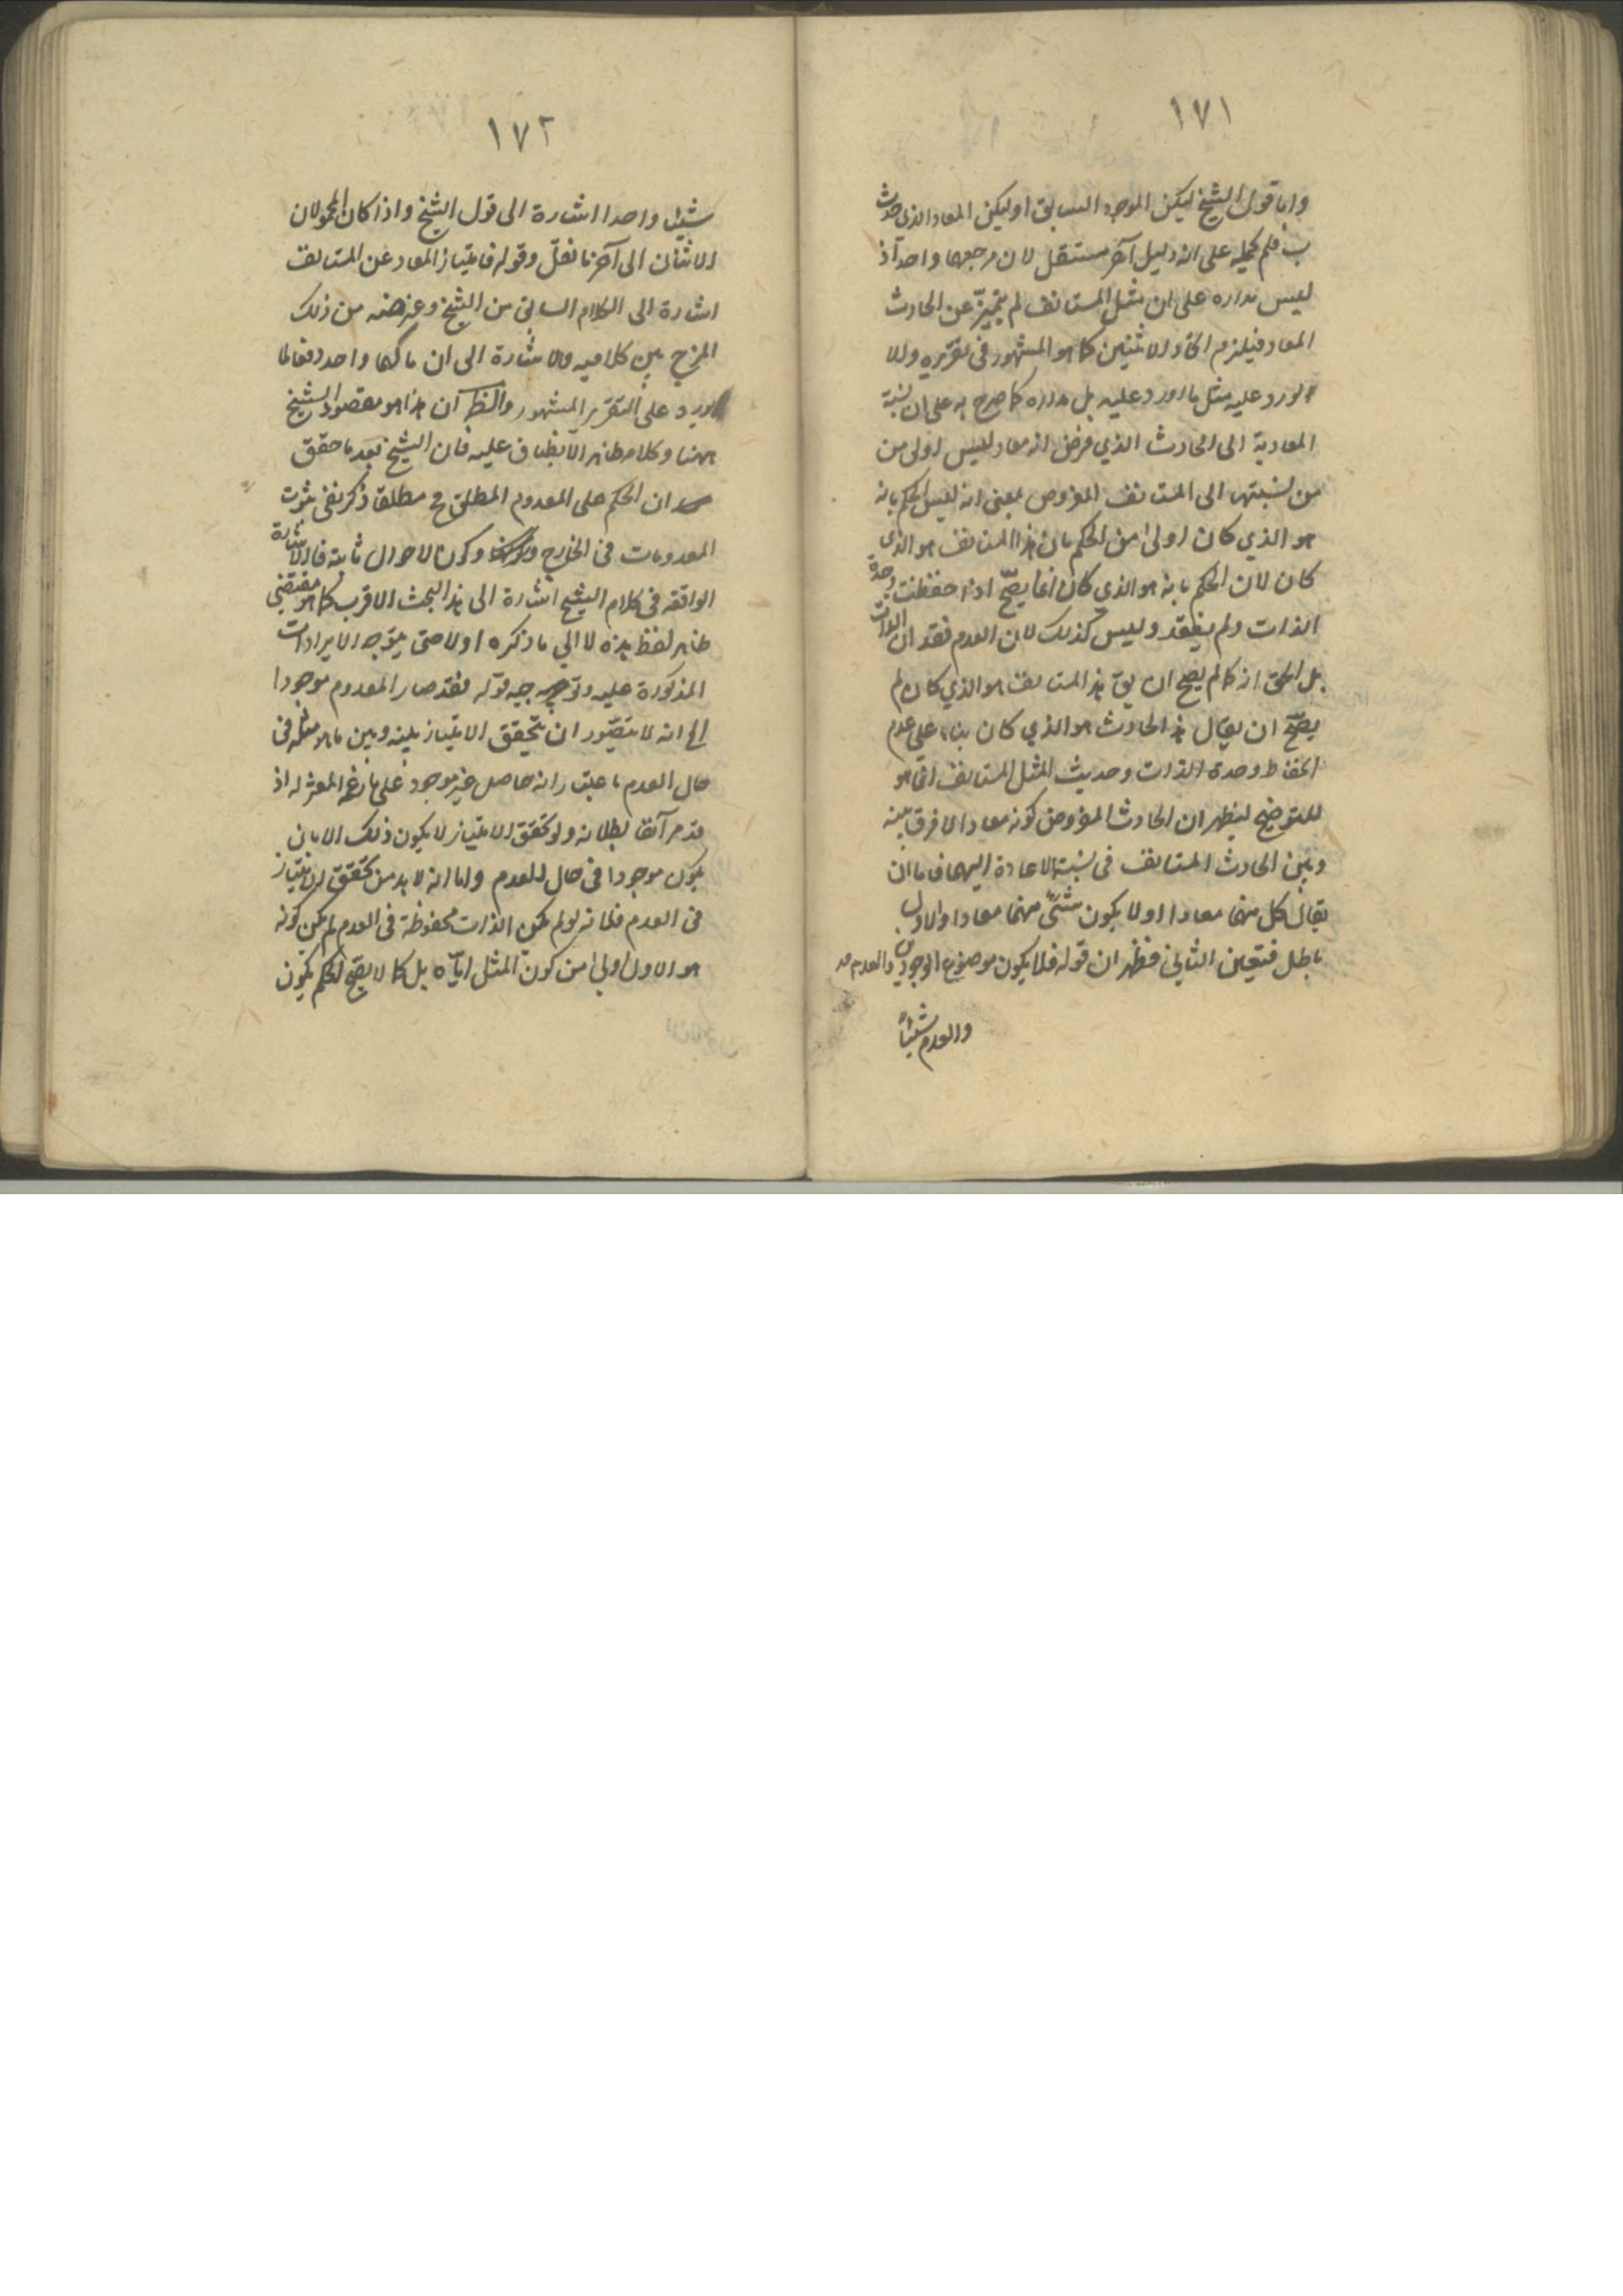 ١٧١
واما قول الشيخ ليكن الموجود السابق اوليكن المعاد الذي حدث
ب فلم يحمله على انه دليل آخر مستقل لان مرجعهما واحد اذ
ليس مداره على ان مثل المستانف لم يتميز عن الحادث
المعاد فيلزم اتحاد الاثنين كما هو المشهور في تقريره والا
لورد عليه مثل ما اورد عليه بل مداره كما صرح به على ان نسبة
المعادية الى الحادث الذي فرض انه معاد ليس اولى من
من نسبتها الى المستانف المفروض بمعنى انه ليس الحكم بانه
هو الذي كان اولى من الحكم بان هذا المستانف هو الذي
كان لان الحكم بانه هو الذي كان انما يصح اذا حفظت وحدة
الذات ولم يفقد وليس كذلك لان العدم فقدان الذات
بل الحق انه كما لم يصح ان يق هذا المستانف هو الذي كان لم
يصح ان يقال هذا الحادث هو الذي كان بناء على عدم
انحفاظ وحدة الذات وحديث المثل المستانف انما هو
للتوضيح ليظهر ان الحادث المفروض كونه معادا لا فرق بينه
وبين الحادث المستانف في نسبة الاعادة اليهما فاما ان
يقال كل منهما معادا او لا يكون شئ منهما معادا والاول
باطل فتعين الثاني فظهر ان قوله فلا يكون موضوع الوجودين والعدم
والعدم شيئاً
١٧٢
شيئا واحدا اشارة الى قول الشيخ واذا كان المحمولان
الاثنان الى آخر ما نقل وقوله فامتياز المعاد عن المستانف
اشارة الى الكلام السابق من الشيخ وغرضه من ذلك
المزج بين كلاميه والاشارة الى ان مآلهما واحد دفعا لما
يورد على التقرير المشهور والظ ان هذا هو مقصود الشيخ
ههنا وكلامه ظاهر الانطباق عليه فان الشيخ بعد ما حقق
ان الحكم على المعدوم المطلق مح مطلقا ذكر نفي ثبوت
المعدومات في الخارج وكون الاحوال ثابتة فالاشارة
الواقعة في كلام الشيخ اشارة الى هذا البحث الاقرب كما هو مقتضى
ظاهر لفظ هذه لا الى ما ذكره اولا حتى يتوجه الايرادات
المذكورة عليه وتوجيه قوله فقد صار المعدوم موجودا
الخ انه لا يتصور ان يتحقق الامتياز بينه وبين ما هو مثله في
حال العدم باعتبار انه حاصل غير موجود على ما زعمه المعتزله اذ
قد مر آنفا بطلانه ولو تحقق الامتياز لا يكون ذلك الا بان
يكون موجودا في حال العدم واما انه لا بد من تحقق الامتياز
في العدم فلانه لو لم يكن الذات محفوظة في العدم لم يكن كونه
هو الاول اولى من كون المثل اياه بل كما لا يصح الحكم بكون